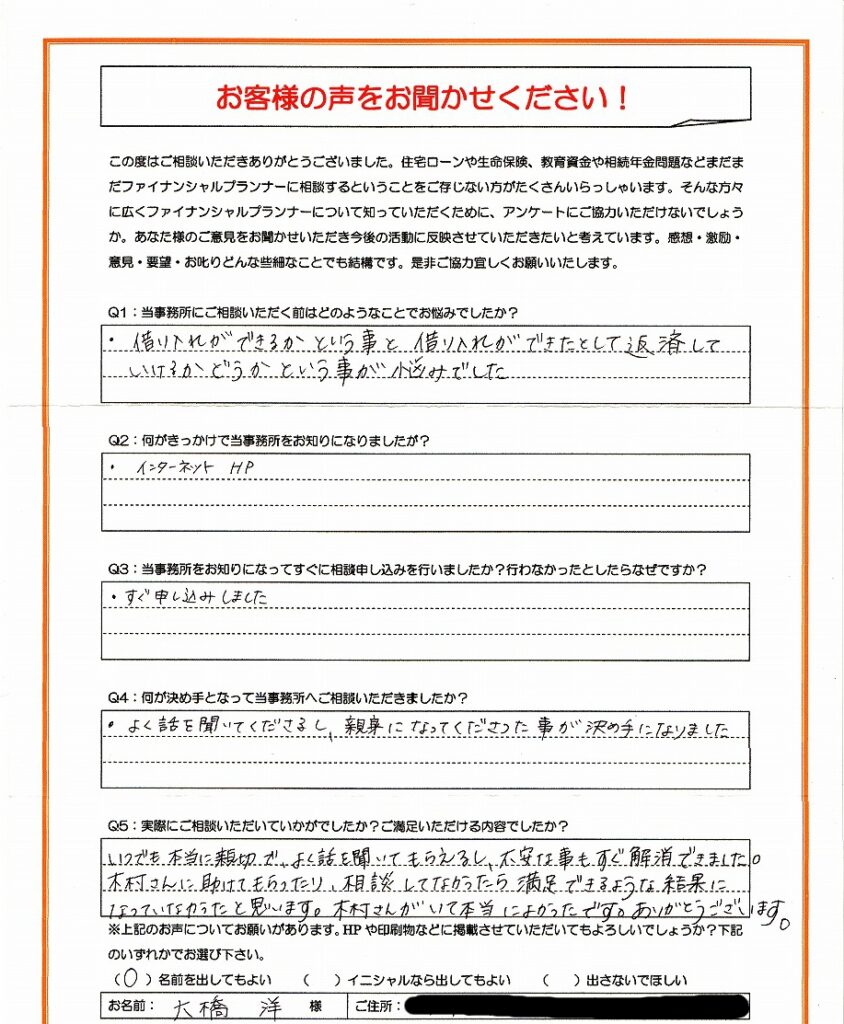 お客様の声をお聞かせください！
この度はご相談いただきありがとうございました。住宅ローンや生命保険、教育資金や相続年金問題などまだま
だファイナンシャルプランナーに相談するということをご存じない方がたくさんいらっしゃいます。そんな方々
に広くファイナンシャルプランナーについて知っていただくために、アンケートにご協力いただけないでしょう
か。あなた様のご意見をお聞かせいただき今後の活動に反映させていただきたいと考えています。感想・激励・
意見・要望・お叱りどんな些細なことでも結構です。是非ご協力宜しくお願いいたします。
Q1：当事務所にご相談いただく前はどのようなことでお悩みでしたか？
・借り入れができるかという事と借り入れができたとして返済して
いけるかどうかという事が悩みでした
Q2：何がきっかけで当事務所をお知りになりましたが？
・インターネット HP
Q3：当事務所をお知りになってすぐに相談申し込みを行いましたか？行わなかったとしたらなぜですか？
・すぐ申し込みしました
Q4：何が決め手となって当事務所へご相談いただきましたか？
・よく話を聞いてくださるし、親身になってくださった事が決め手になりました
Q5：実際にご相談いただいていかがでしたか？ご満足いただける内容でしたか？
いつでも本当に親切で、よく話を聞いてもらえるし、不安な事もすぐ解消できました。
木村さんに助けてもらったり、相談してなかったら満足できるような結果に
なっていなかったと思います。木村さんがいて本当によかったです。ありがとうございます。
※上記のお声についてお願いがあります。HPや印刷物などに掲載させていただいてもよろしいでしょうか？下記
のいずれかでお選び下さい。
（○）名前を出してもよい （ ）イニシャルなら出してもよい （ ）出さないでほしい
お名前： 大橋 洋 様 ご住所：